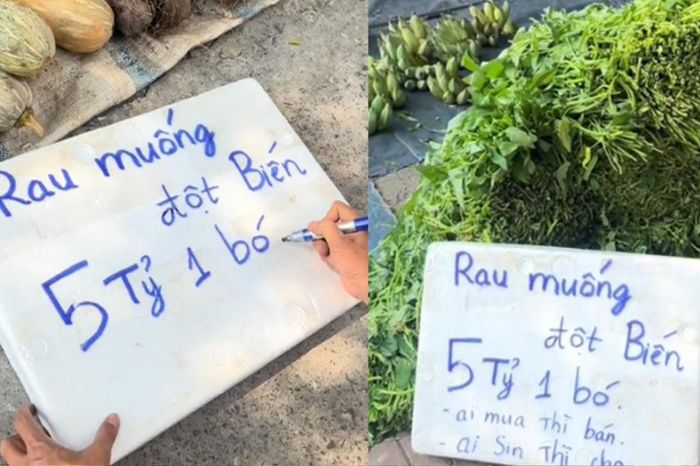 Rau muống
đột Biến
5 Tỷ 1 bó
Rau muống
đột Biến
5 Tỷ 1 bó.
- ai mua Thì bán.
- ai Sin Thì cho